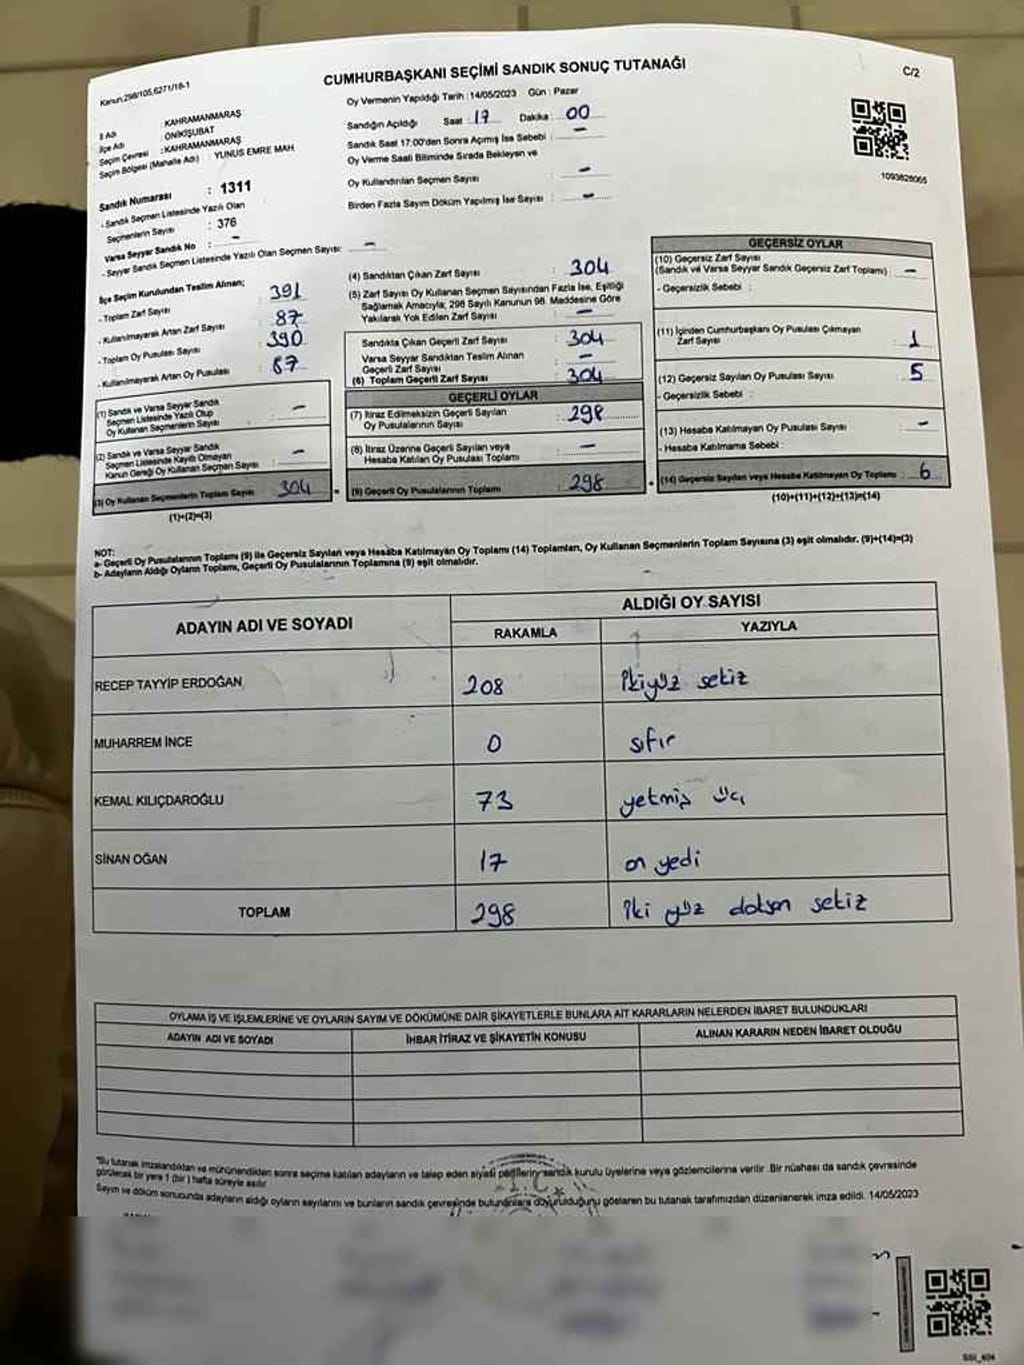 Kanun,298/105,6271/18-1
CUMHURBAŞKANI SEÇİMİ SANDIK SONUÇ TUTANAĞI
C/2
İl Adı : KAHRAMANMARAŞ
İlçe Adı : ONİKİŞUBAT
Seçim Çevresi : KAHRAMANMARAŞ
Seçim Bölgesi (Mahalle Adı) : YUNUS EMRE MAH.
Oy Vermenin Yapıldığı Tarih : 14/05/2023 Gün : Pazar
Sandığın Açıldığı Saat : 17 Dakika : 00
Sandık Saat 17:00'den Sonra Açılmış İse Sebebi : -
Oy Verme Saati Bitiminde Sırada Bekleyen ve
Oy Kullandırılan Seçmen Sayısı : -
Birden Fazla Sayım Döküm Yapılmış İse Sayısı : -
1093828065
Sandık Numarası : 1311
- Sandık Seçmen Listesinde Yazılı Olan
Seçmenlerin Sayısı : 376
Varsa Seyyar Sandık No : -
- Seyyar Sandık Seçmen Listesinde Yazılı Olan Seçmen Sayısı: -
İlçe Seçim Kurulundan Teslim Alınan;
- Toplam Zarf Sayısı : 391
- Kullanılmayarak Artan Zarf Sayısı : 87
- Toplam Oy Pusulası Sayısı : 390
- Kullanılmayarak Artan Oy Pusulası : 87
(1) Sandık ve Varsa Seyyar Sandık
Seçmen Listesinde Yazılı Olup
Oy Kullanan Seçmenlerin Sayısı : -
(2) Sandık ve Varsa Seyyar Sandık
Seçmen Listesinde Kayıtlı Olmayan
Kanun Gereği Oy Kullanan Seçmen Sayısı : -
(3) Oy Kullanan Seçmenlerin Toplam Sayısı : 304
(1)+(2)=(3)
(4) Sandıktan Çıkan Zarf Sayısı : 304
(5) Zarf Sayısı Oy Kullanan Seçmen Sayısından Fazla İse, Eşitliği
Sağlamak Amacıyla; 298 Sayılı Kanunun 98. Maddesine Göre
Yakılarak Yok Edilen Zarf Sayısı : -
Sandıkta Çıkan Geçerli Zarf Sayısı : 304
Varsa Seyyar Sandıktan Teslim Alınan
Geçerli Zarf Sayısı : -
(6) Toplam Geçerli Zarf Sayısı : 304
GEÇERLİ OYLAR
(7) İtiraz Edilmeksizin Geçerli Sayılan
Oy Pusulalarının Sayısı : 298
(8) İtiraz Üzerine Geçerli Sayılan veya
Hesaba Katılan Oy Pusulası Toplamı : -
(9) Geçerli Oy Pusulalarının Toplamı : 298
GEÇERSİZ OYLAR
(10) Geçersiz Zarf Sayısı
(Sandık ve Varsa Seyyar Sandık Geçersiz Zarf Toplamı) : -
- Geçersizlik Sebebi :
(11) İçinden Cumhurbaşkanı Oy Pusulası Çıkmayan
Zarf Sayısı : 1
(12) Geçersiz Sayılan Oy Pusulası Sayısı : 5
- Geçersizlik Sebebi :
(13) Hesaba Katılmayan Oy Pusulası Sayısı : -
- Hesaba Katılmama Sebebi :
(14) Geçersiz Sayılan veya Hesaba Katılmayan Oy Toplamı : 6
(10)+(11)+(12)+(13)=(14)
NOT:
a- Geçerli Oy Pusulalarının Toplamı (9) ile Geçersiz Sayılan veya Hesaba Katılmayan Oy Toplamı (14) Toplamları, Oy Kullanan Seçmenlerin Toplam Sayısına (3) eşit olmalıdır. (9)+(14)=(3)
b- Adayların Aldığı Oyların Toplamı, Geçerli Oy Pusulalarının Toplamına (9) eşit olmalıdır.
ADAYIN ADI VE SOYADI
ALDIĞI OY SAYISI
RAKAMLA YAZIYLA
RECEP TAYYİP ERDOĞAN 208 İkiyüz sekiz
MUHARREM İNCE 0 sıfır
KEMAL KILIÇDAROĞLU 73 yetmiş üç
SİNAN OĞAN 17 on yedi
TOPLAM 298 iki yüz doksan sekiz
OYLAMA İŞ VE İŞLEMLERİNE VE OYLARIN SAYIM VE DÖKÜMÜNE DAİR ŞİKAYETLERLE BUNLARA AİT KARARLARIN NELERDEN İBARET BULUNDUKLARI
ADAYIN ADI VE SOYADI İHBAR İTİRAZ VE ŞİKAYETİN KONUSU ALINAN KARARIN NEDEN İBARET OLDUĞU
"Bu tutanak imzalandıktan ve mühürlendikten sonra seçime katılan adayların ve talep eden siyasi partilerin sandık kurulu üyelerine veya gözlemcilerine verilir. Bir nüshası da sandık çevresinde
görülecek bir yere 1 (bir) hafta süreyle asılır.
Sayım ve döküm sonucunda adayların aldığı oyların sayılarını ve bunların sandık çevresinde bulunanlara duyurulduğunu gösteren bu tutanak tarafımızdan düzenlenerek imza edildi. 14/05/2023